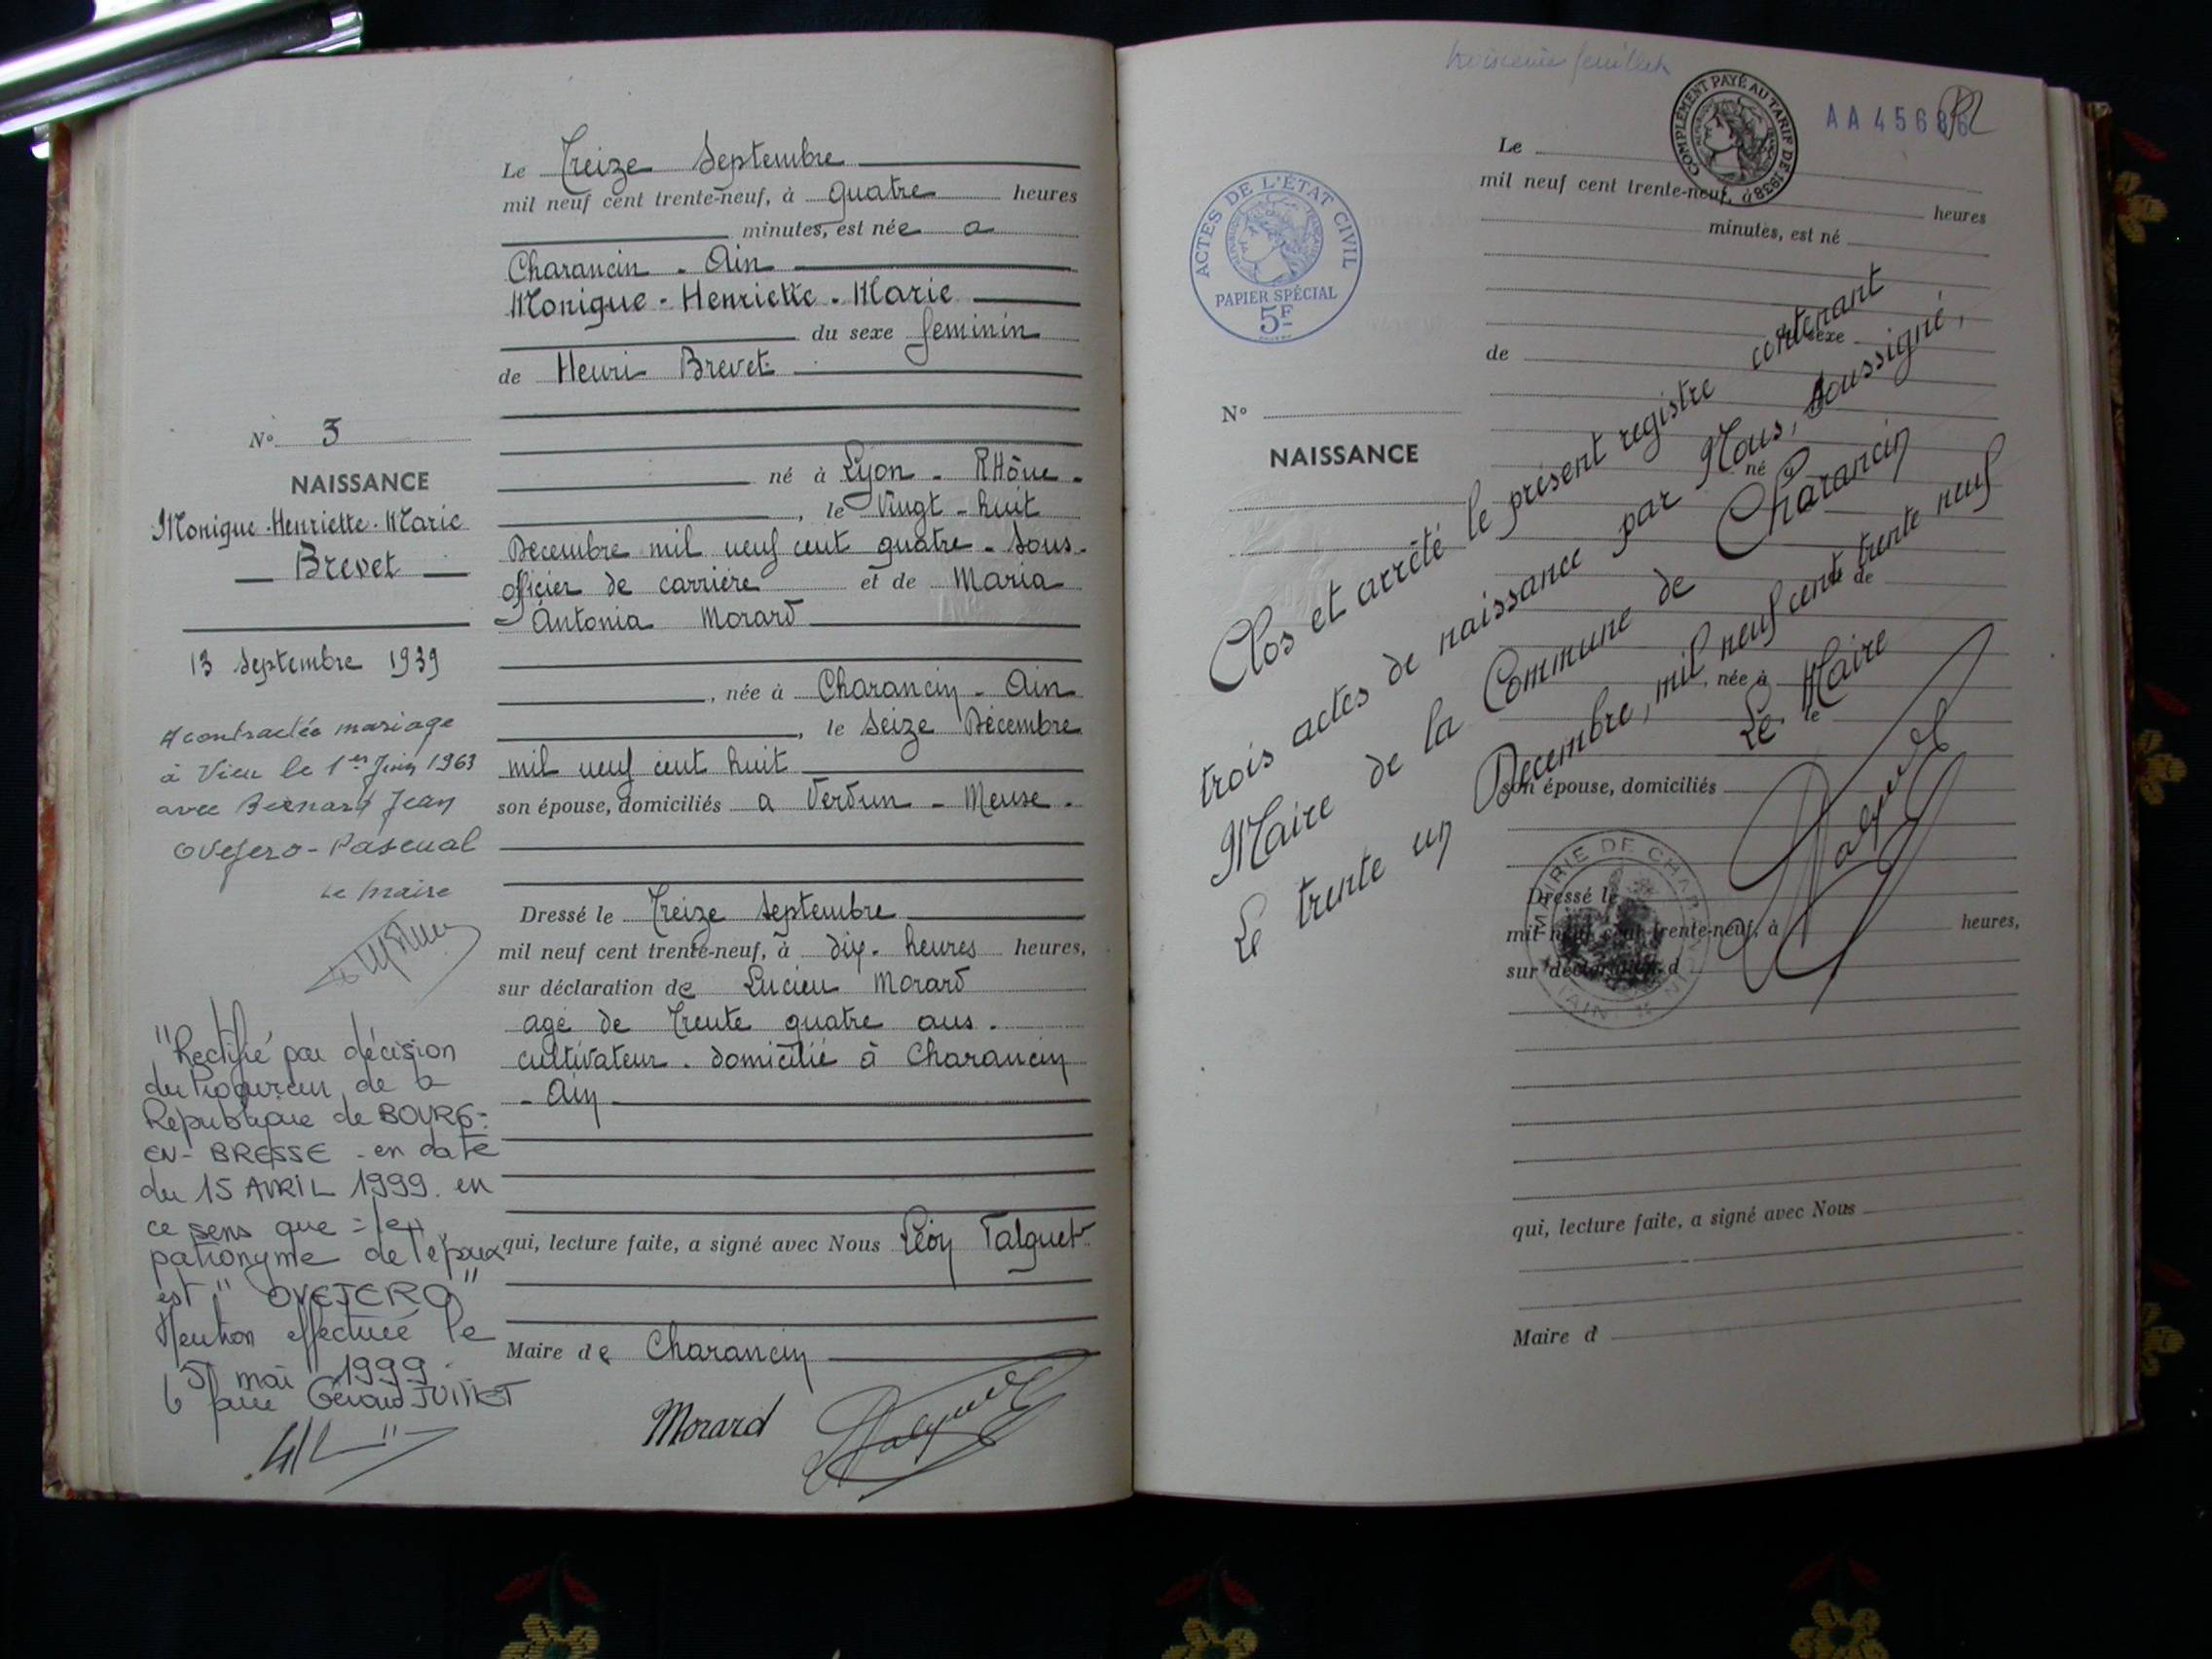 Le Treize Septembre
mil neuf cent trente-neuf, à quatre heures
minutes, est née a
Charancin - Ain
Monique - Henriette - Marie
du sexe feminin
de Henri Brevet
N° 3
NAISSANCE
Monique - Henriette - Marie
Brevet
13 Septembre 1939
A contractée mariage
à Vieu le 1er Juin 1963
avec Bernard Jean
Ovejero - Pascual
Le Maire
"Rectifié par décision
du Procureur de la
République de BOURG-
EN-BRESSE - en date
du 15 AVRIL 1999. en
ce sens que = le
patronyme de l'époux
est "OVEJERO"
Mention effectuée le
5 mai 1999
né à Lyon - RHône -
, le Vingt - huit
Décembre mil neuf cent quatre - Sous-
officier de carrière et de Maria
Antonia Morard
, née à Charancin - Ain
, le Seize Décembre
mil neuf cent huit
son épouse, domiciliés a Verdun - Meuse -
Dressé le Treize Septembre
mil neuf cent trente-neuf, à dix - heures heures,
sur déclaration de Lucien Morard
agé de Trente quatre ans -
cultivateur - domicilié à Charancin
- Ain
qui, lecture faite, a signé avec Nous Léon Talguet
Maire de Charancin
Morard
troisième feuillet
COMPLÉMENT PAYÉ AU TARIF DE 1938
AA 456
ACTES DE L'ÉTAT CIVIL
RÉPUBLIQUE FRANÇAISE
PAPIER SPÉCIAL
5F
Le
mil neuf cent trente-neuf, à heures
minutes, est né
sexe
de
N°
NAISSANCE
né à
le
et de
, née à
le
son épouse, domiciliés
Dressé le
mil neuf cent trente-neuf, à heures,
sur déclaration d
qui, lecture faite, a signé avec Nous
Maire d
Clos et arrêté le présent registre contenant
trois actes de naissance par Nous, soussigné,
Maire de la Commune de Charancin
Le trente un Decembre, mil neuf cent trente neuf
Le Maire
Talguet
MAIRIE DE CHARANCIN
(AIN)